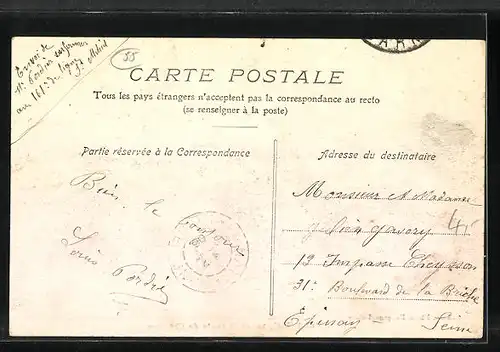 Envoi de
au 161e de ligne
St Mihiel
55
CARTE POSTALE
Tous les pays étrangers n'acceptent pas la correspondance au recto
(se renseigner à la poste)
Partie réservée à la Correspondance
Adresse du destinataire
Bien le bonjour
Monsieur et Madame
13 Impasse
31 Boulevard de la Briche
Epinay Seine